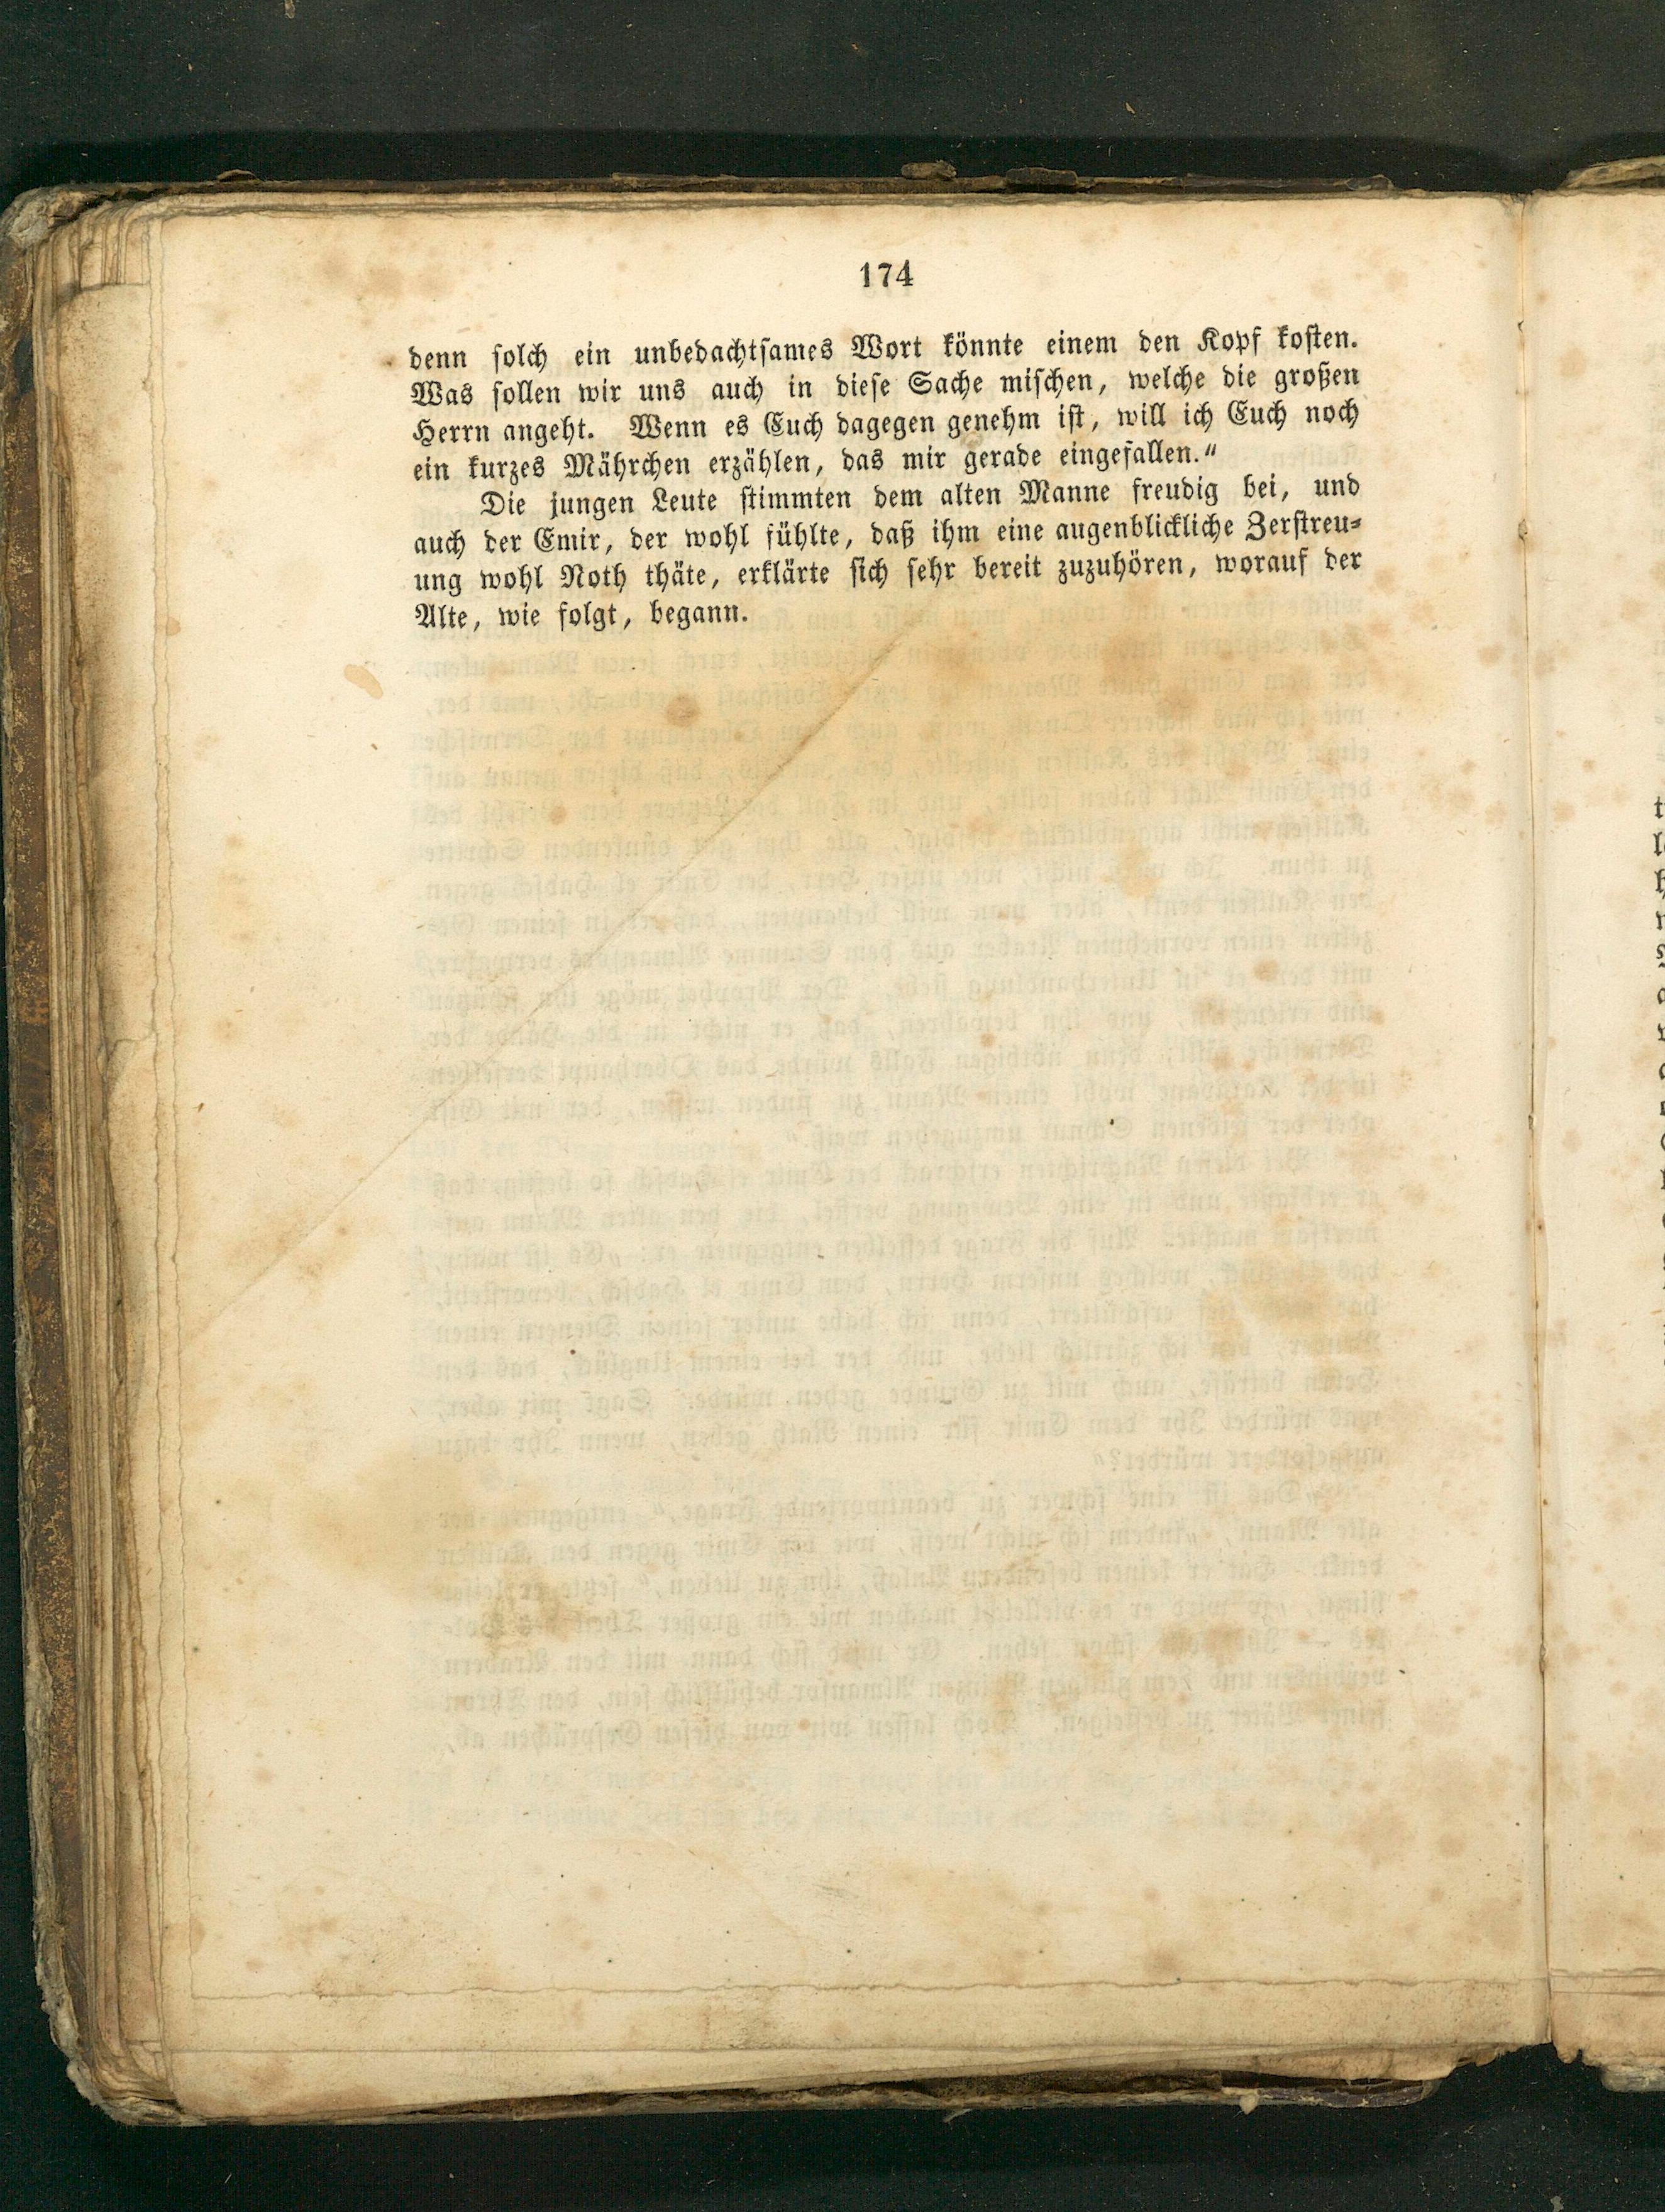 174
denn solch ein unbedachtsames Wort könnte einem den Kopf kosten.
Was sollen wir uns auch in diese Sache mischen, welche die großen
Herrn angeht. Wenn es Euch dagegen genehm ist, will ich Euch noch
ein kurzes Mährchen erzählen, das mir gerade eingefallen.“
Die jungen Leute stimmten dem alten Manne freudig bei, und
auch der Emir, der wohl fühlte, daß ihm eine augenblickliche Zerstreu-
ung wohl Noth thäte, erklärte sich sehr bereit zuzuhören, worauf der
Alte, wie folgt, begann.